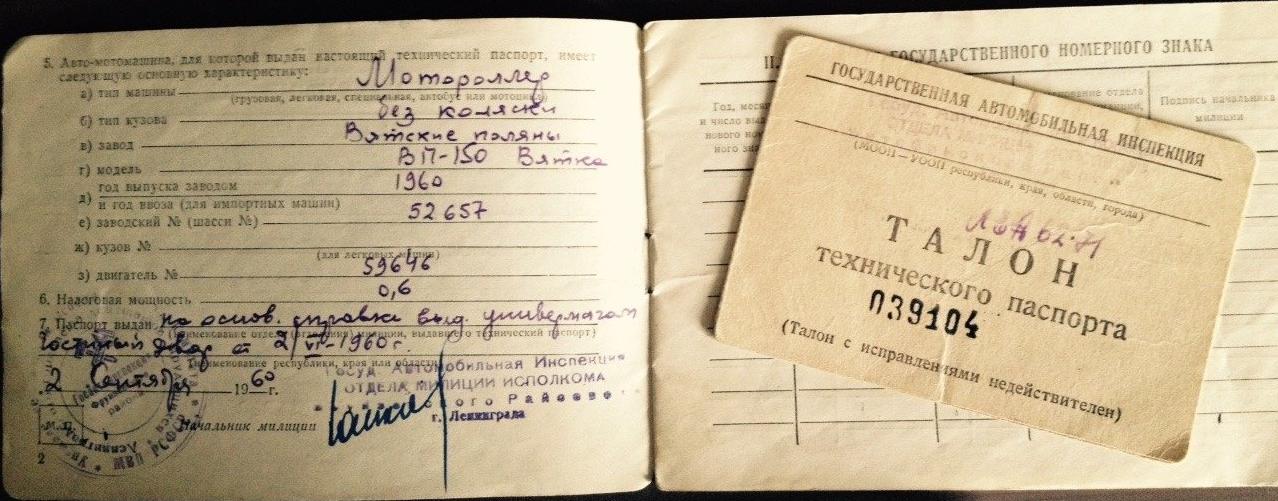 5. Авто-мотомашина, для которой выдан настоящий технический паспорт, имеет
следующую основную характеристику:
а) тип машины Мотороллер
(грузовая, легковая, специальная, автобус или мотоцикл)
б) тип кузова без коляски
в) завод Вятские поляны
г) модель ВП-150 Вятка
д) год выпуска заводом
и год ввоза (для импортных машин) 1960
е) заводский № (шасси №) 52657
ж) кузов №
(для легковых машин)
з) двигатель № 59646
6. Налоговая мощность 0,6
7. Паспорт выдан на основ. справки выд. универмагом
(наименование отдела милиции, выдавшего технический паспорт)
Гостиный двор от 2/VI-1960 г.
(наименование республики, края или области)
2 Сентября 1960 г.
ГОСУД. Автомобильная Инспекция
ОТДЕЛА МИЛИЦИИ ИСПОЛКОМА
ого Райсове
г. Ленинграда
М.П.
Начальник милиции
2
ГОСУДАРСТВЕННОГО НОМЕРНОГО ЗНАКА
Год, меся
и число выда
нового но
ного зн
ование отдела
Подпись начальника
милиции
ГОСУДАРСТВЕННАЯ АВТОМОБИЛЬНАЯ ИНСПЕКЦИЯ
(МООП—УООП республики, края, области, города)
ЛЭА 62-71
ТАЛОН
технического паспорта
039104
(Талон с исправлениями недействителен)